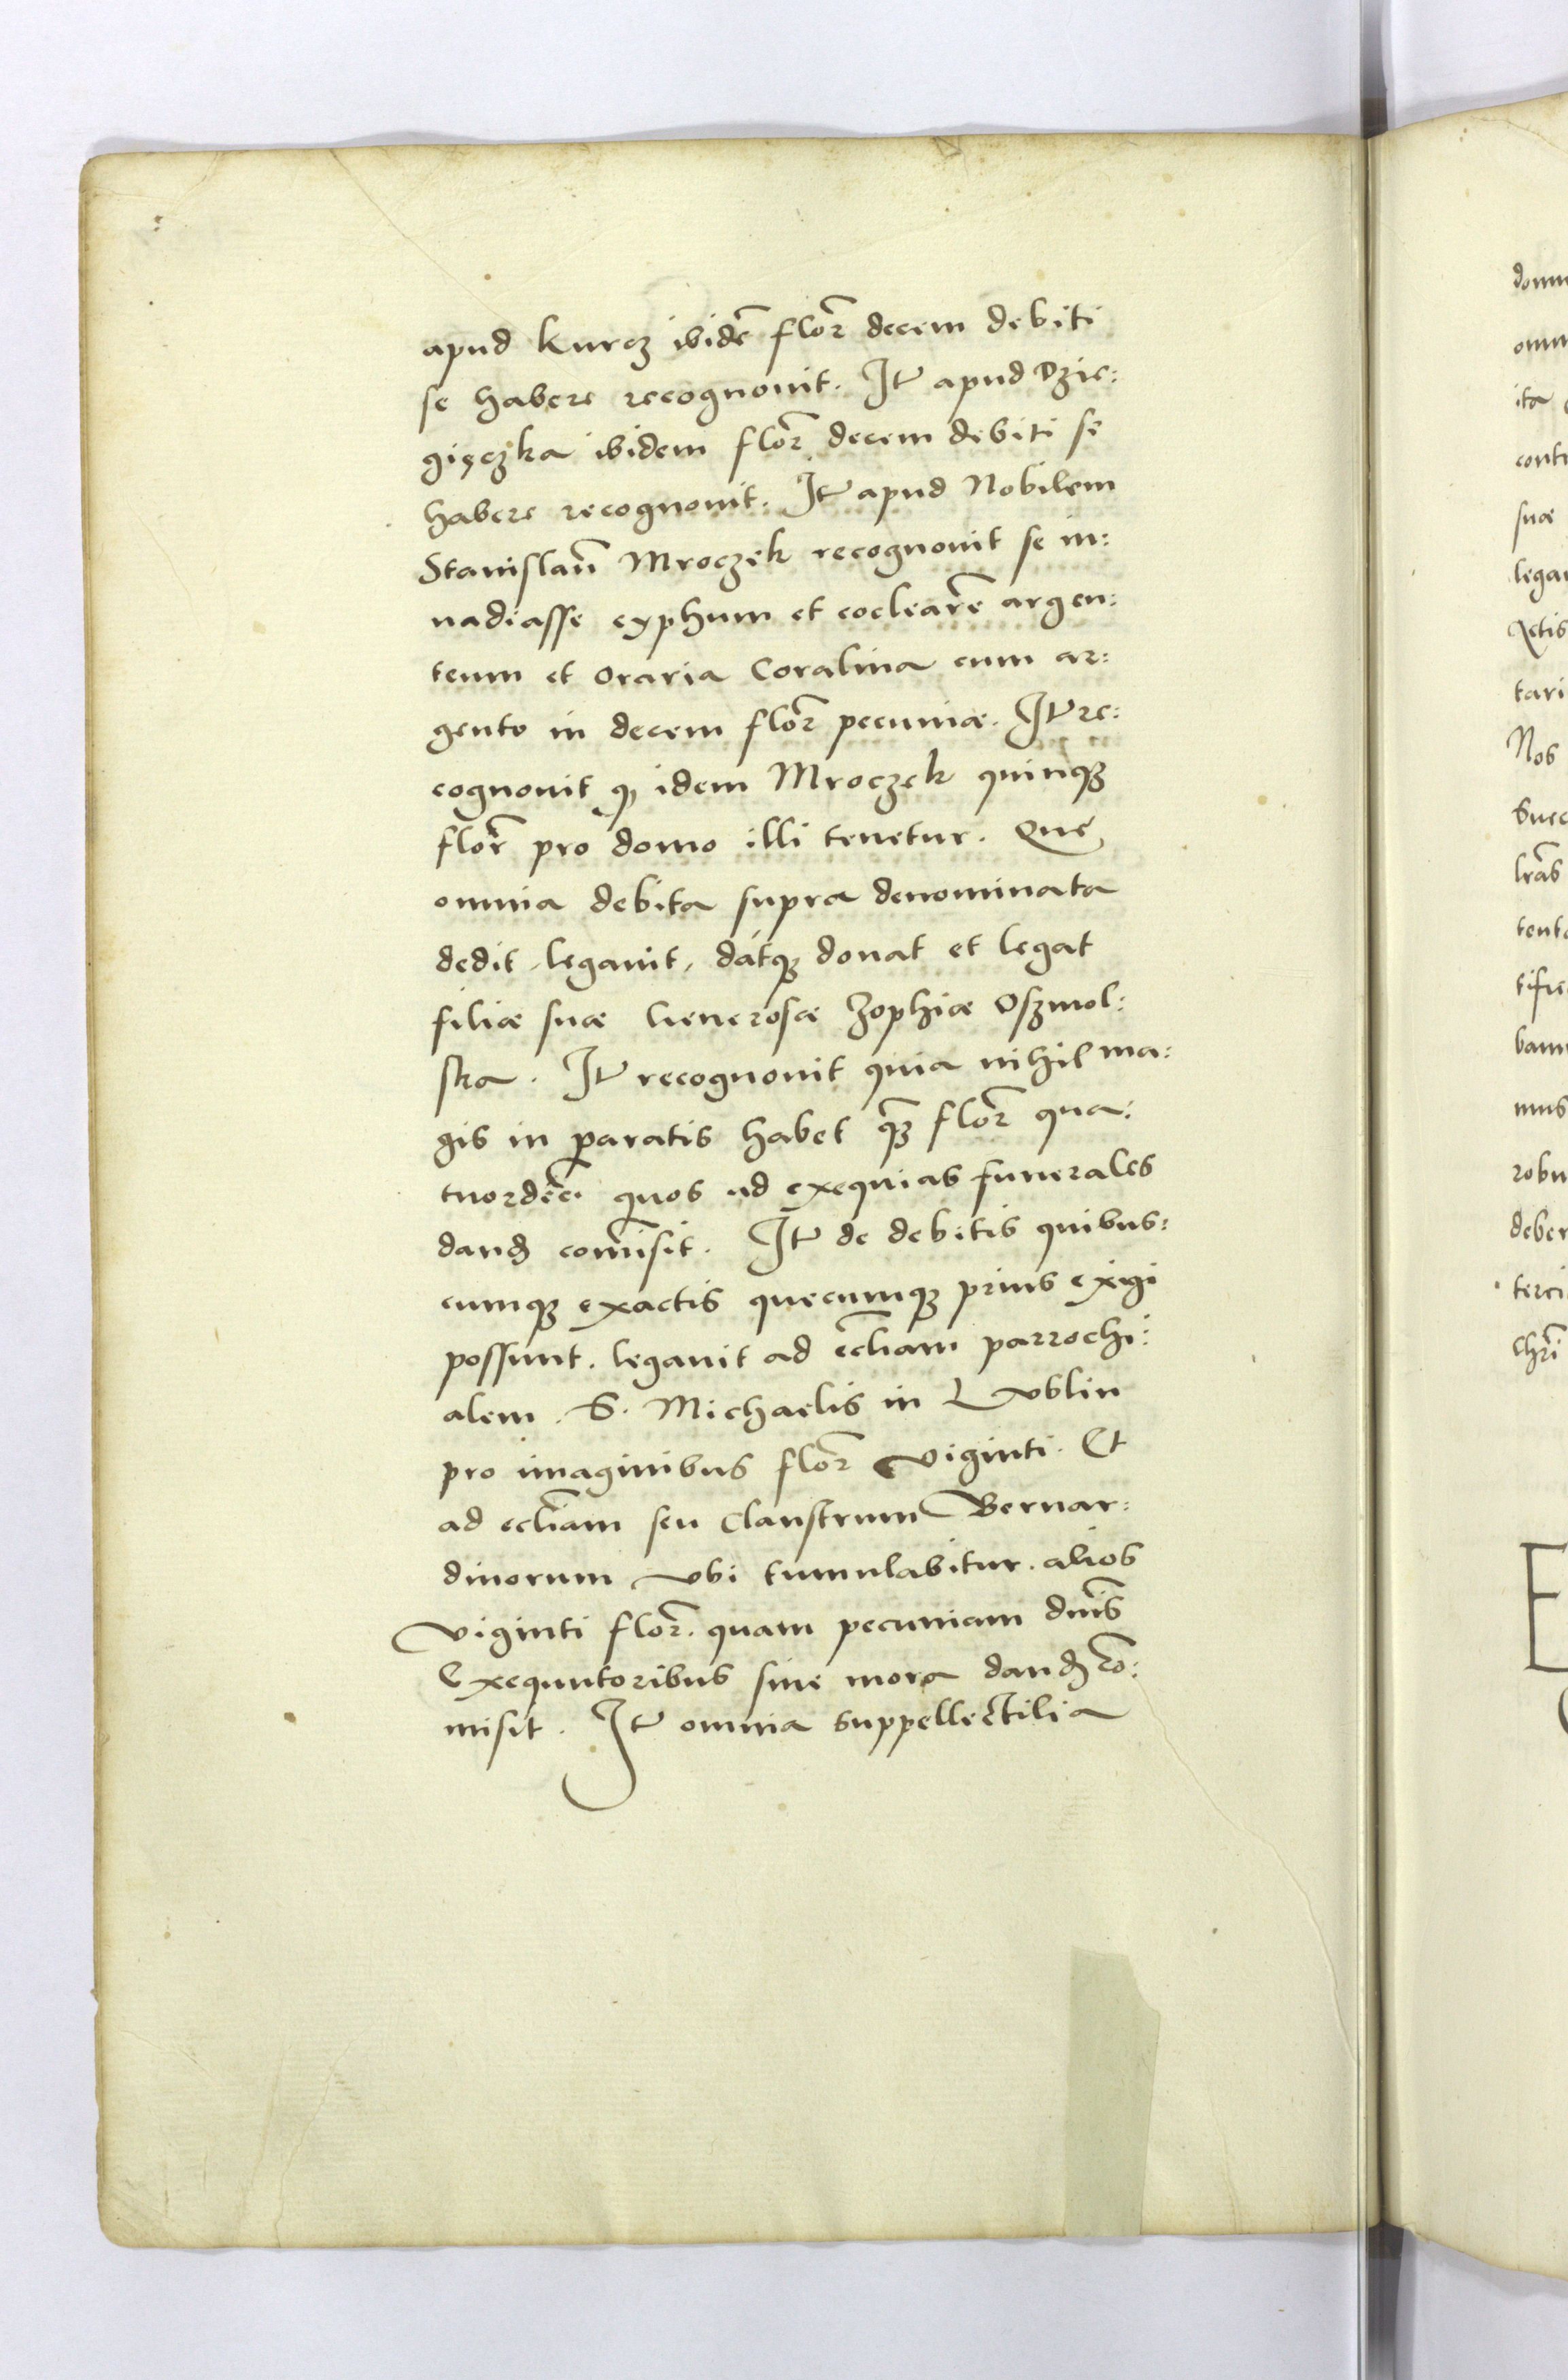 apud Kurcz ibidē flor̄ decem debiti
se habere recognouit. It apud Dzie:
gięczka ibidem flor̄ decem debiti se
habere recognouit. It apud Nobilem
Stanislaū Mroczek recognouit se in:
uadiasse cyphum et cocleare argen:
teum et oraria Coralina cum ar:
gento in decem flor̄ pecuniæ. It re:
cognouit qꝫ idem Mroczek quinqꝫ
flor̄ pro domo illi tenetur. Quę
omnia debita supra denominata
dedit, legauit, dátqꝫ donat et legat
filiæ suæ Generosæ Zophiæ Oszmol:
ska. It recognouit quia nihil ma:
gis in paratis habet qꝫ̄ flor̄ qua:
tuordēc. quos ad exequias funerales
dand comīsit. It de debitis quibus:
cumqꝫ exactis quecumqꝫ prius exigi
possunt. legauit ad ecl̄iam parrochi:
alem. S. Michaelis in Lublin
pro imaginibus flor̄ viginti. Et
ad ecl̄iam seu Claustrum Bernar:
dinorum vbi tumulabitur. alios
viginti flor̄. quam pecuniam dn̄is
Exequutoribus sine mora dand cō:
misit. It omnia suppellectilia
domu
omn
ita
conti
suæ
legau
Actis
tari
Nos
Succ
lr̄as
tento
tifi
bam
mus
robu
deber
terci
Chr̄i
E